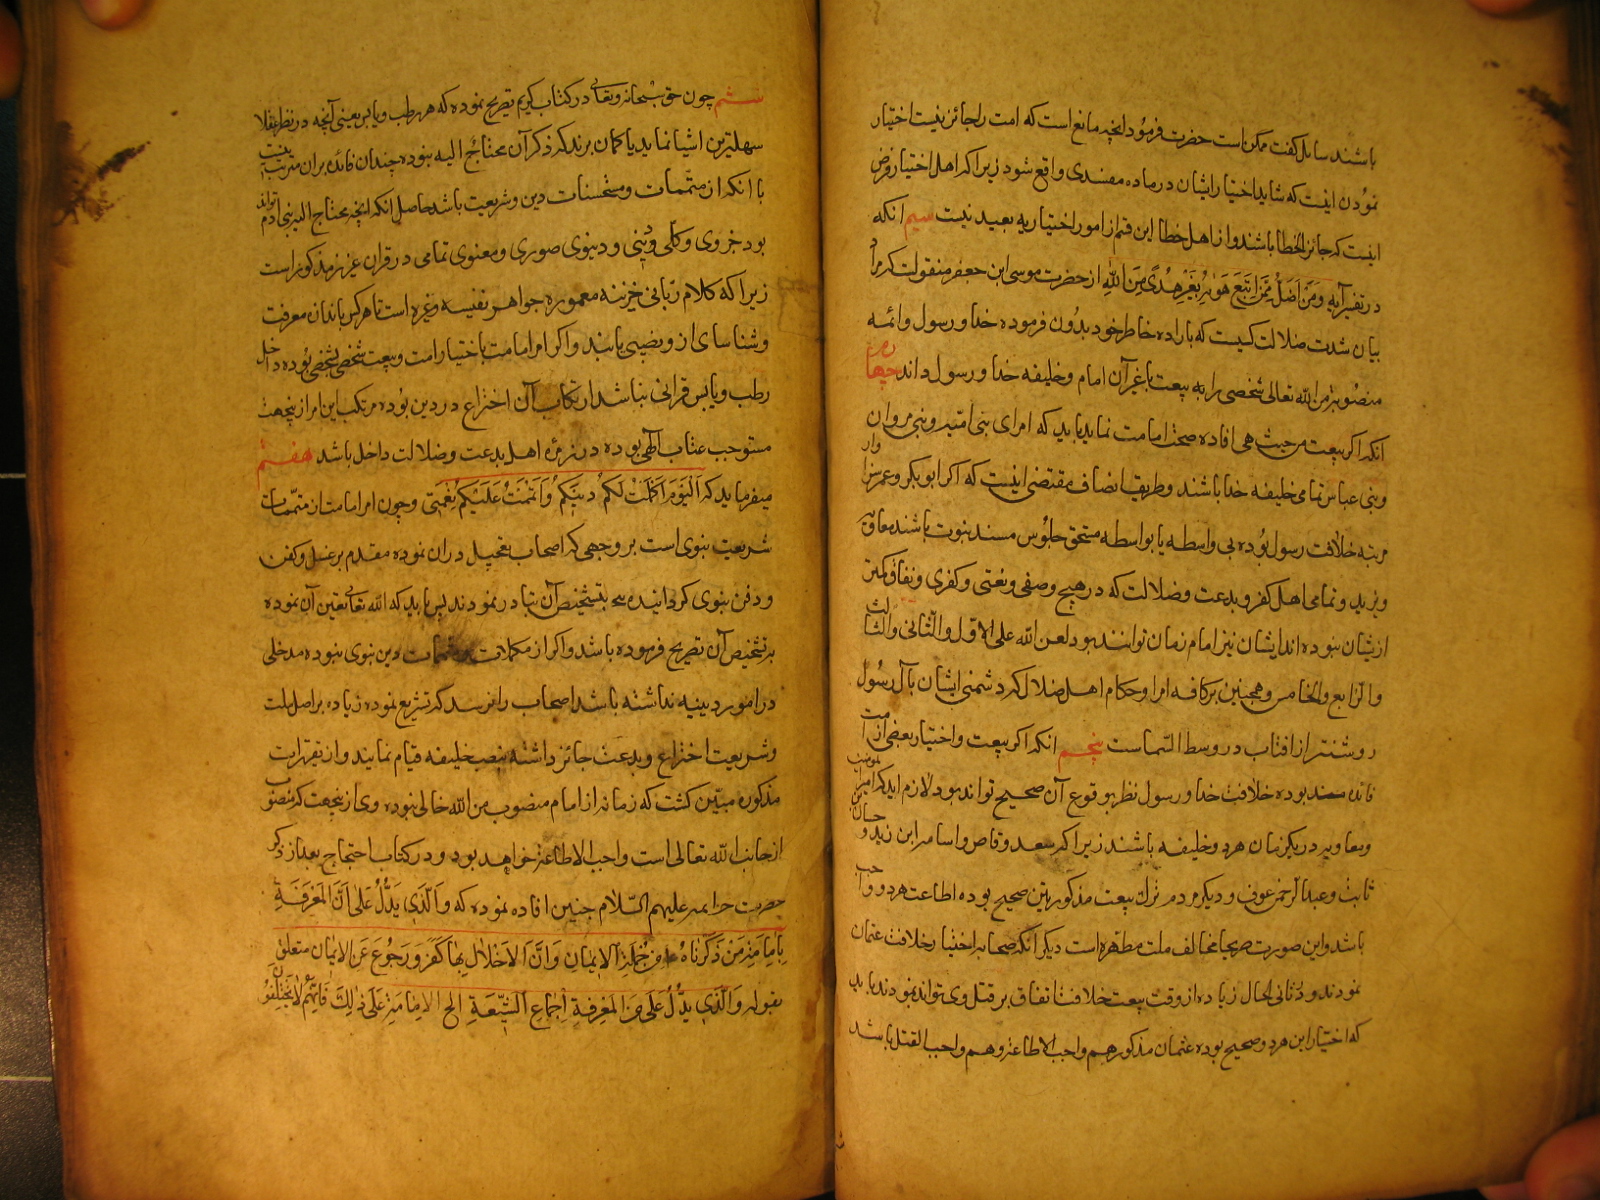 باشند سایل گفت ممکن است حضرت فرمود انچه مانع است که امت را جائز نیست اختیار
نمودن اینست که شاید اختیار ایشان در ماده مفسدی واقع شود زیرا که اهل اختیار فرض
اینست که جائز الخطا باشند و از اهل خطا این قسم از امور اختیاریه بعید نیست سیم انکه
در تفسیر آیه وَمَنْ اَضَلُّ مِمَّنِ اتَّبَعَ هَوٰیهُ بِغَیْرِ هُدًی مِنَ اللّٰهِ از حضرت موسی ابن جعفر منقولست که مراد
بیان شدت ضلالت کسیست که باراده خاطر خود بدون فرموده خدا و رسول و ائمه
منصوبین من الله تعالی شخصی را به بیعت با غیر آن امام و خلیفه خدا و رسول داند چهارم
انکه اکر بیعت من حیث هی افاده صحت امامت نماید باید که امرای بنی امیه و بنی مروان
و بنی عباس تمامی خلیفه خدا باشند و طریق انصاف مقتضی اینست که اکر ابوبکر و عمر سزاوار
مرتبه خلافت رسول بوده بی واسطه یا بواسطه مستحق جلوس مسند نبوت باشند معاویه
و یزید و تمامی اهل کفر و بدعت و ضلالت که در هیچ وصفی و نعتی و کفری و نفاق کمتر
ازیشان نبوده اند ایشان نیز امام زمان توانند بود لعن الله علی الاول والثانی والثالث
والرابع والخامس و همچنین بر کافه امرا و حکام اهل ضلال که دشمنی ایشان با آل رسول
روشنتر از افتاب در وسط السماست پنجم انکه اکر بیعت و اختیار بعضی از امت
فائده مسند بوده خلافت خدا و رسول نظر بوقوع آن صحیح تواند بود لازم اید که امیرالمومنین
و معاویه در یکزمان هر دو خلیفه باشند زیرا که سعد وقاص و اسامه ابن زید و حسان
ثابت و عبدالرحمن عوف و دیگر مردم ترک بیعت مذکورین صحیح بوده اطاعت هر دو واجب
باشد و این صورت صریحا مخالف ملت مطهره است دیکر انکه صحابه اختیار خلافت عثمان
نمودند و در ثانی الحال زیاده از وقت بیعت خلافت اتفاق بر قتل وی تواند نمودند باید
که اختیار این هر دو صحیح بوده عثمان مذکور هم واجب الاطاعة و هم واجب القتل باشد
ششم چون حق سبحانه وتعالی در کتاب کریم تصریح نموده که هر رطب و یابس یعنی آنچه در نظر عقلا
سهلترین اشیا نماید یا کمان برند که ذکر آن محتاج الیه نبوده چندان فائده بران مترتب نیست
با انکه از متممات و مستحسنات دین و شریعت باشد حاصل انکه انچه محتاج الیه بنی آدم تواند
بود خروی و کلی و دینی و دنیوی صوری و معنوی تمامی در قران عزیز مذکور است
زیرا که کلام ربانی خزینه معموره جواهر نفیسه وغیره است تا هر کس باندازه معرفت
و شناسای از و نصیبی یابند و اکر امر امامت باختیار امت و بیعت شخصی بشخصی بوده داخل
رطب و یابس قرانی نباشد ارتکاب آن اختراع در دین بوده مرتکب این امر از ینجهت
مستوجب عتاب الهی بوده در زمره اهل بدعت و ضلالت داخل باشد هفتم
میفرماید که اَلْیَوْمَ اَکْمَلْتُ لَکُمْ دِینَکُمْ وَاَتْمَمْتُ عَلَیْکُمْ نِعْمَتِی و چون امر امامت از متممات
شریعت نبوی است بر وجهی که اصحاب تعجیل دران نموده مقدم بر غسل و کفن
و دفن نبوی کردانیده بتشخیص آن تبادر نمودند پس باید که الله تعالی تعین آن نموده
بر تشخیص آن تصریح فرموده باشد و اکر از مکملات و متممات دین نبوی نبوده مدخلی
در امور دینیه نداشته باشد اصحاب را نرسد که تشریع نموده زیاده بر اصل ملت
و شریعت اختراع و بدعت جائز داشته بنصب خلیفه قیام نمایند و از تقریرات
مذکوره مبین کشت که زمانه از امام منصوب من الله خالی نبوده وی از ینجهت که منصوب
از جانب الله تعالی است واجب الاطاعة خواهد بود و در کتاب احتجاج بعد از ذکر
حضرات ائمه علیهم السلام چنین افاده نموده که وَالَّذِی یَدُلُّ عَلٰی اَنَّ الْمَعْرِفَةَ
بِاِمَامَةِ مَنْ ذَکَرْنَاهُ مِنْ جُمْلَةِ الْاِیمَانِ وَاَنَّ الْاِخْلَالَ بِهَا کُفْرٌ وَرُجُوعٌ عَنِ الْاِیمَانِ متعلق
بقوله وَالَّذِی یَدُلُّ عَلٰی الْمَعْرِفَةِ اِجْمَاعُ الشِّیعَةِ الْاِمَامِیَّةِ عَلٰی ذٰلِکَ فَاِنَّهُمْ لَا یَخْتَلِفُونَ